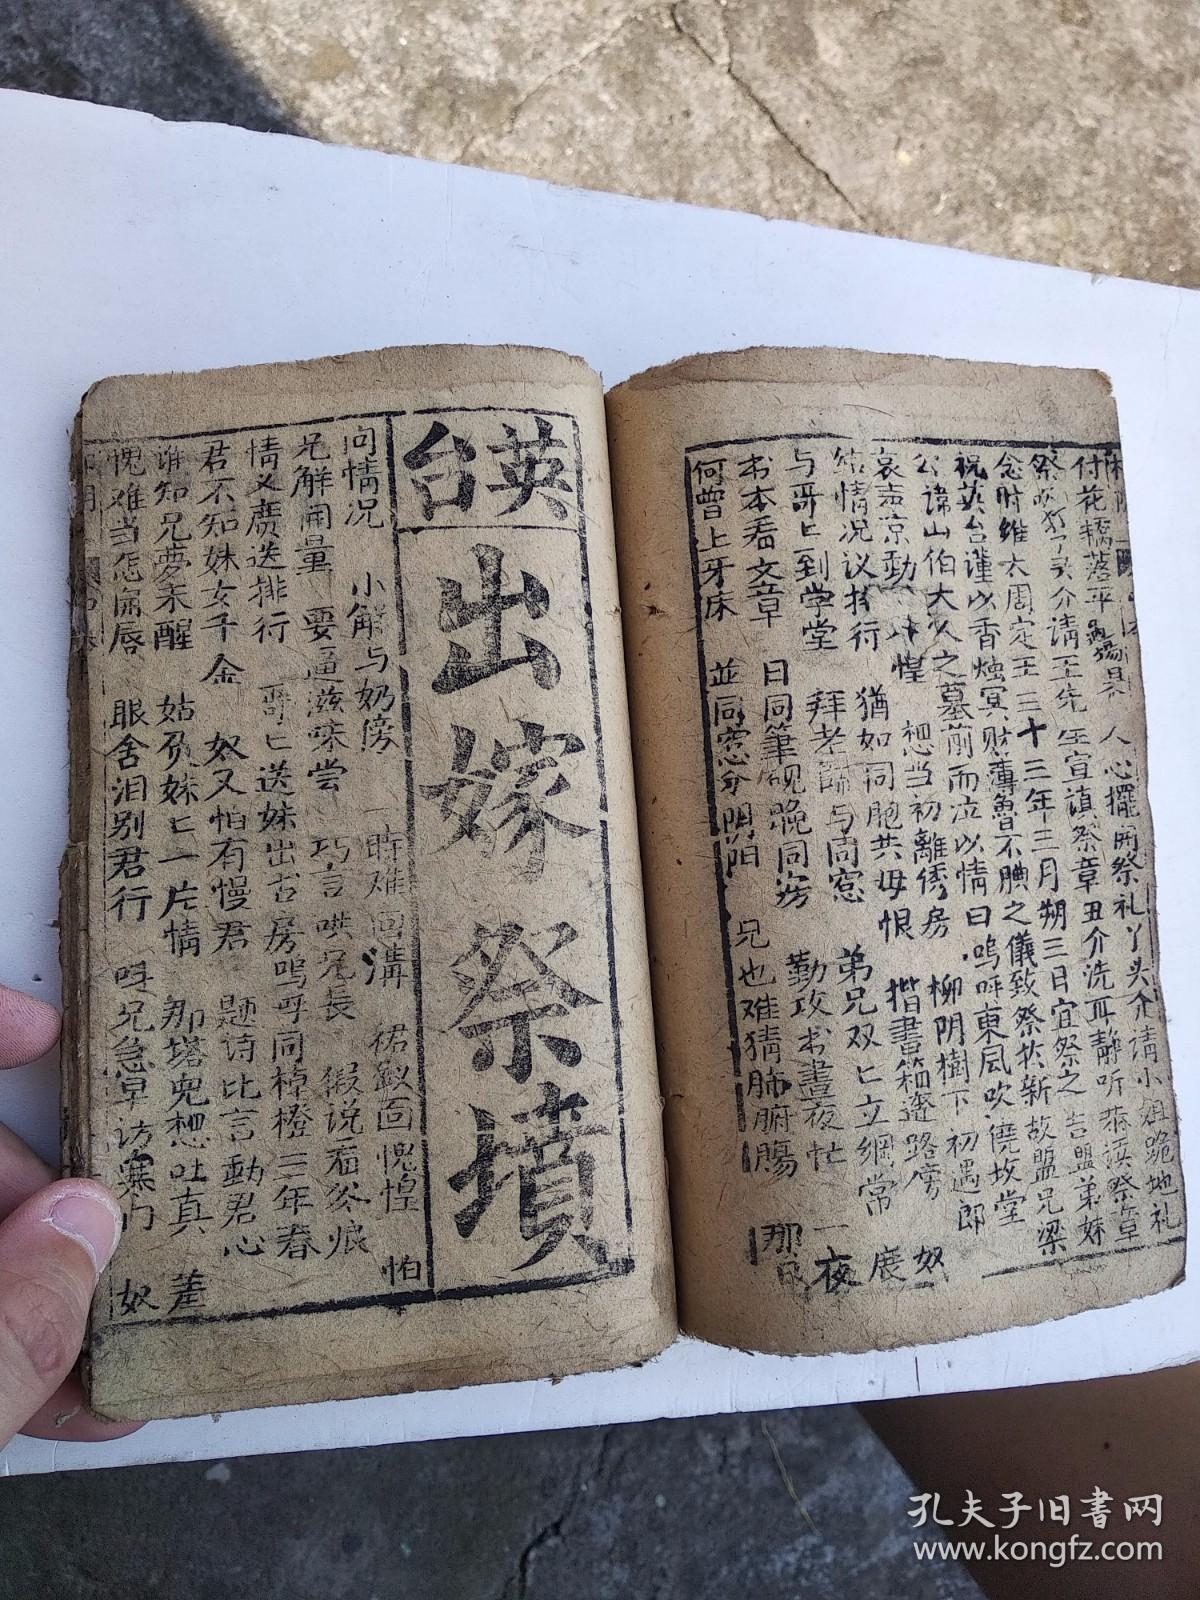 付花轎落平陽 人心擺開祭礼丫头介請小姐跪地礼
介請王先生宣讀祭章丑介洗耳静听恭讀祭章
念时維大周定王三十三年三月朔三日宜祭之吉盟弟妹
祝英台謹以香烛冥财薄魯不腆之儀致祭於新故盟兄梁
公諱山伯大人之墓前而泣以情曰嗚呼東風吹 坟堂
想当初離綉房 柳阴樹下初遇郎 奴
結情况议找行 猶如同胞共母恨 揩書箱 路旁 展
与哥匕到学堂 拜老師与同窓 弟兄双匕立綱常
书本看文章 日同筆硯晚同窑 勤攻书晝夜忙 一夜
何曾上牙床 並同窓分阴阳 兄也难猜肺腑腸 那
英台
出嫁祭墳
问情况 小解与奶傍 一時难回溝 佑 回愧惶 怕
兄解開量 要逼滋味尝 巧言哄兄長 猴说看 痕
情义廣送排行 哥匕送妹出古房嗚呼同棹橙三年春
君不知妹女千金 奴又怕有慢君 题诗比言動君心
谁知兄夢未醒 姑負妹匕一片情 那塔兜想吐真 差
愧难当怎 唇 眼舍泪别君行 呌兄急早访寒门 奴
孔夫子旧书网
www.kongfz.com